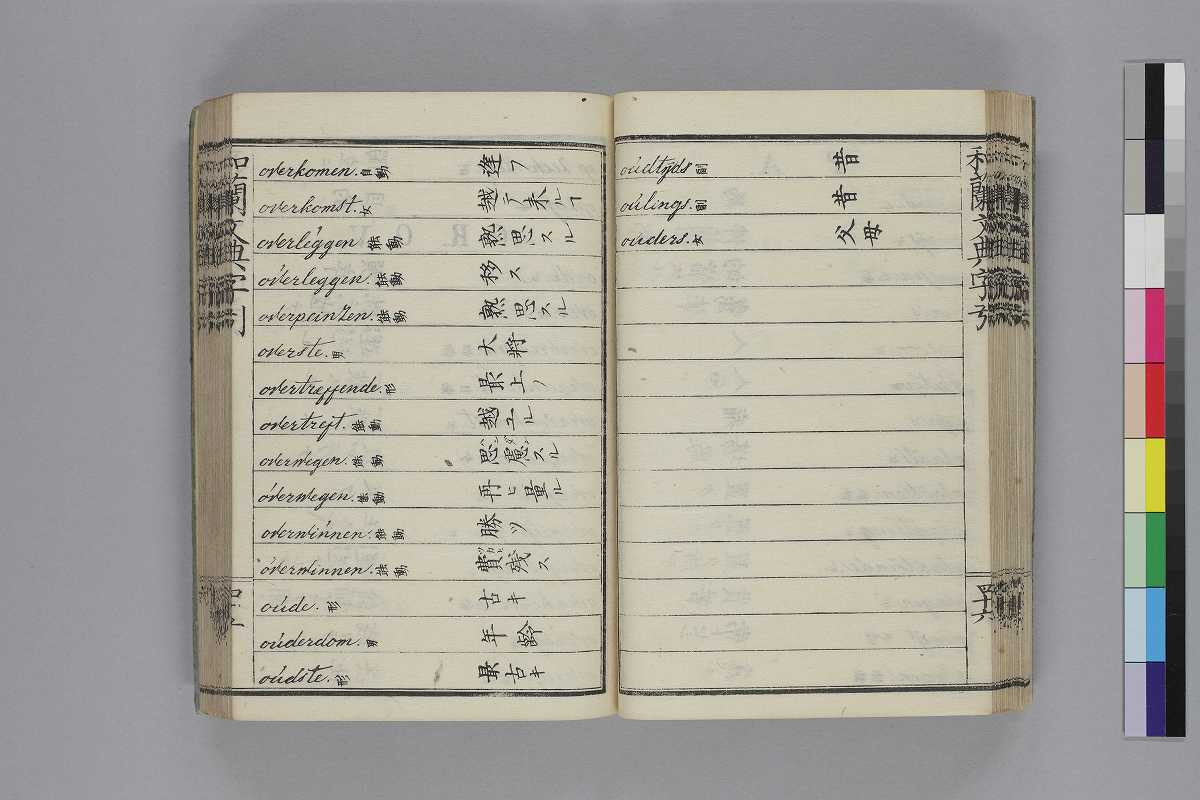 和蘭文典字引
overkomen. 自動 逢フ
overkomst. 女 越テ来ルヿ
overléggen 能動 熟思スル
óverleggen. 能動 移ス
overpeinzen. 能動 熟思スル
overste. 男 大將
overtreffende. 形 最上ノ
overtreft. 能動 越ユル
overwegen. 能動 思慮スル
óverwegen. 能動 再ヒ量ル
overwinnen. 能動 勝ツ
óverwinnen. 能動 費残ス
oúde. 形 古キ
oúderdom. 男 年齢
oúdste. 形 最古キ
oúdtyds 副 昔
oúlings. 副 昔
oúders. 女 父母
和蘭文典字引
四十六